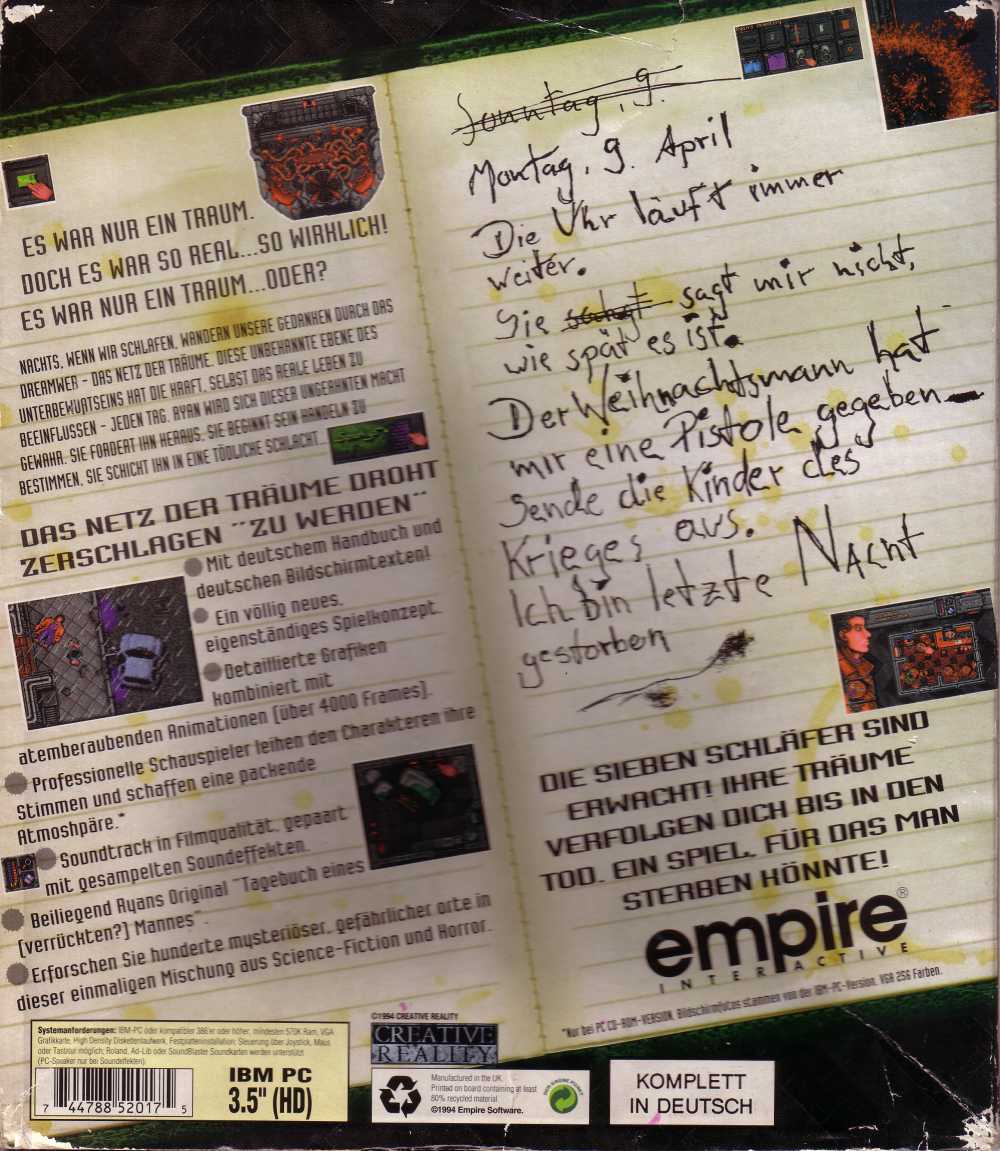 ES WAR NUR EIN TRAUM.
DOCH ES WAR SO REAL...SO WIRHLICH!
ES WAR NUR EIN TRAUM...ODER?
NACHTS, WENN WIR SCHLAFEN, WANDERN UNSERE GEDANHEN DURCH DAS
DREAMWEB - DAS NETZ DER TRÄUME. DIESE UNBEHANNTE EBENE DES
UNTERBEWUßTSEINS HAT DIE HRAFT, SELBST DAS REALE LEBEN ZU
BEEINFLUSSEN - JEDEN TAG. RYAN WIRD SICH DIESER UNGEAHNTEN MACHT
GEWAHR. SIE FORDERT IHN HERAUS, SIE BEGINNT SEIN HANDELN ZU
BESTIMMEN, SIE SCHICHT IHN IN EINE TÖDLICHE SCHLACHT.
DAS NETZ DER TRÄUME DROHT
ZERSCHLAGEN "ZU WERDEN"
Mit deutschem Handbuch und
deutschen Bildschirmtexten!
Ein völlig neues,
eigenständiges Spielkonzept.
Detaillierte Grafiken
kombiniert mit
atemberaubenden Animationen [über 4000 Frames].
Professionelle Schauspieler leihen den Charakteren ihre
Stimmen und schaffen eine packende
Atmoshpäre.*
Soundtrack in Filmqualität, gepaart
mit gesampelten Soundeffekten.
Beiliegend Ryans Original "Tagebuch eines
[verrückten?] Mannes".
Erforschen Sie hunderte mysteriöser, gefährlicher orte in
dieser einmaligen Mischung aus Science-Fiction und Horror.
Sonntag, 9.
Montag, 9. April
Die Uhr läuft immer
weiter.
Sie sagt mir nicht,
wie spät es ist.
Der Weihnachtsmann hat
mir eine Pistole gegeben
Sende die Kinder des
Krieges aus.
Ich bin letzte Nacht
gestorben
DIE SIEBEN SCHLÄFER SIND
ERWACHT! IHRE TRÄUME
VERFOLGEN DICH BIS IN DEN
TOD. EIN SPIEL, FÜR DAS MAN
STERBEN HÖNNTE!
empire®
INTERACTIVE
*Nur bei PC CD-ROM-VERSION. Bildschirmfotos stammen von der IBM-PC-Version. VGA 256 Farben.
Systemanforderungen: IBM-PC oder kompatibler 386'er oder höher, mindesten 570K Ram, VGA
Grafikkarte, High Density Diskettenlaufwerk, Festplatteninstallation; Steuerung über Joystick, Maus
oder Tastatur möglich; Roland, Ad-Lib oder SoundBlaster Soundkarten werden unterstützt
(PC-Speaker nur bei Soundeffekten).
7 44788 52017 5
IBM PC
3.5" (HD)
©1994 CREATIVE REALITY
CREATIVE
REALITY
Manufactured in the UK.
Printed on board containing at least
80% recycled material.
©1994 Empire Software.
KOMPLETT
IN DEUTSCH